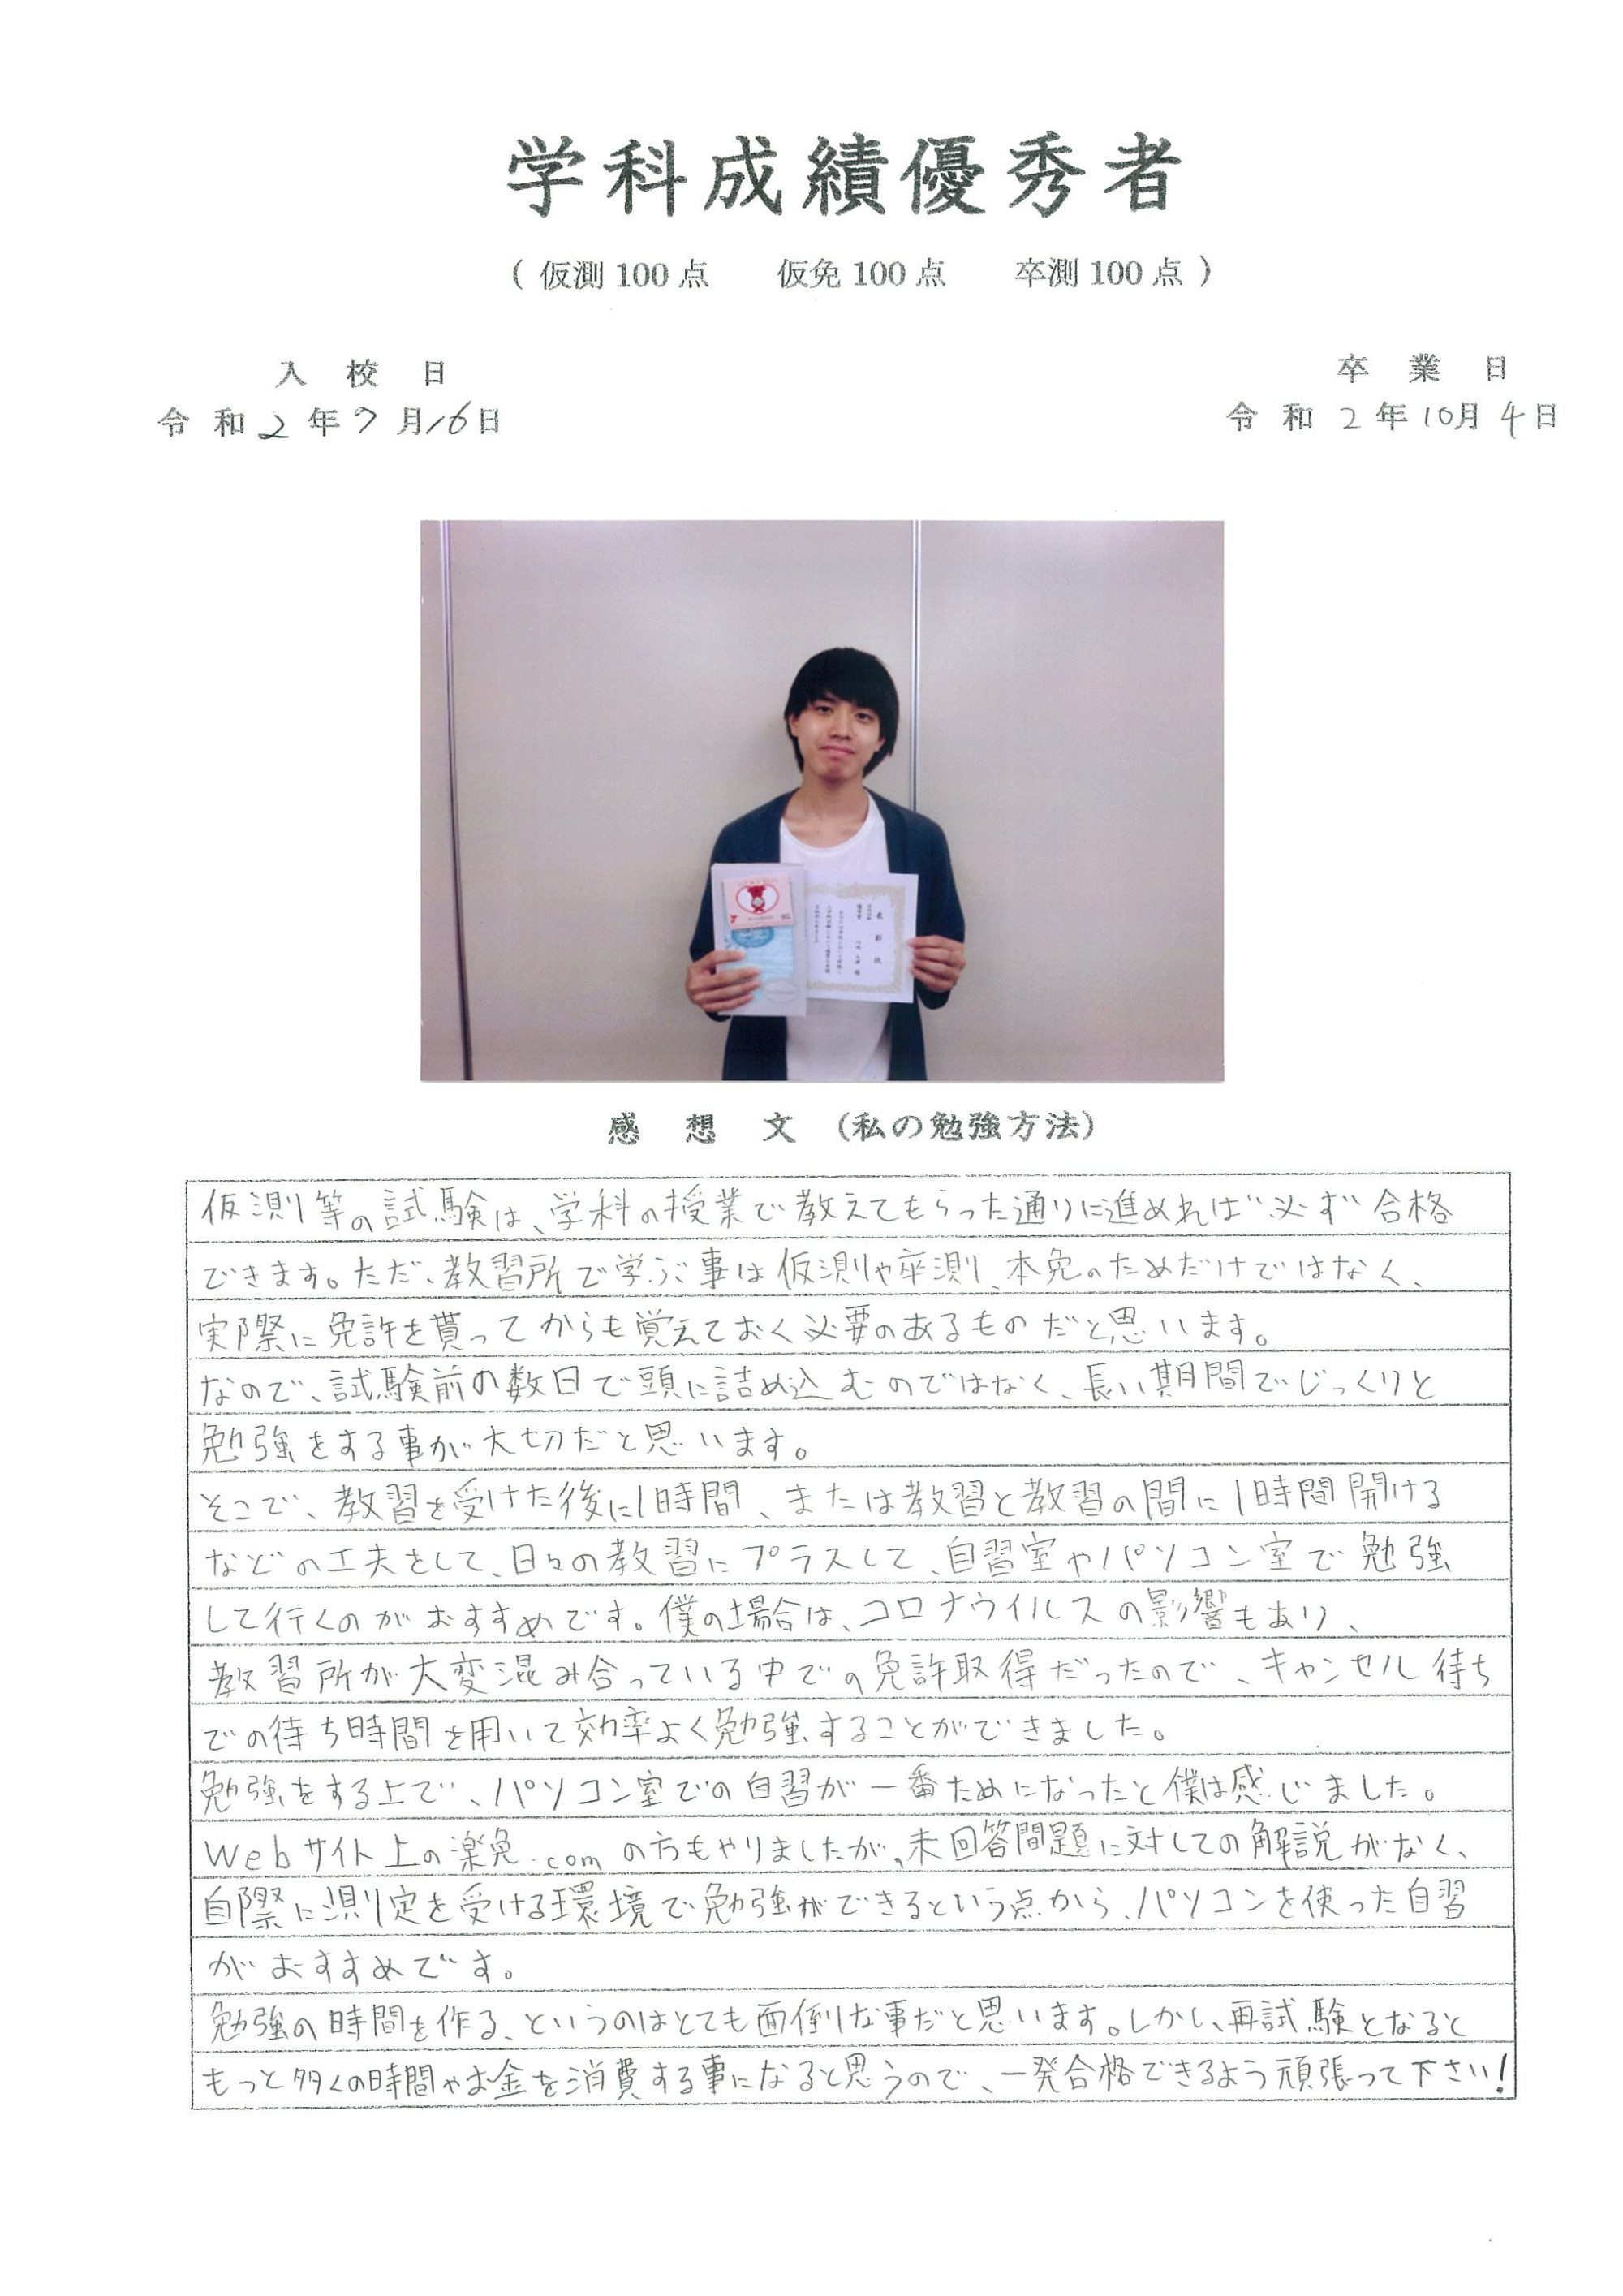 学科成績優秀者
(仮測100点 仮免100点 卒測100点)
入校日
卒業日
令和2年7月16日
令和2年10月4日
表彰状
感想文 (私の勉強方法)
仮測等の試験は、学科の授業で教えてもらった通りに進めれば必ず合格
できます。ただ、教習所で学ぶ事は仮測や卒測、本免のためだけではなく、
実際に免許を貰ってからも覚えておく必要のあるものだと思います。
なので、試験前の数日で頭に詰め込むのではなく、長い期間でじっくりと
勉強をする事が大切だと思います。
そこで、教習を受けた後に1時間、または教習と教習の間に1時間開ける
などの工夫をして、日々の教習にプラスして、自習室やパソコン室で勉強
して行くのがおすすめです。僕の場合は、コロナウイルスの影響もあり、
教習所が大変混み合っている中での免許取得だったので、キャンセル待ち
での待ち時間を用いて効率よく勉強することができました。
勉強をする上で、パソコン室での自習が一番ためになったと僕は感じました。
Webサイト上の楽免.comの方もやりましたが、未回答問題に対しての解説がなく、
自際に測定を受ける環境で勉強ができるという点から、パソコンを使った自習
がおすすめです。
勉強の時間を作る、というのはとても面倒な事だと思います。しかし、再試験となると
もっと多くの時間やお金を消費する事になると思うので、一発合格できるよう頑張って下さい!